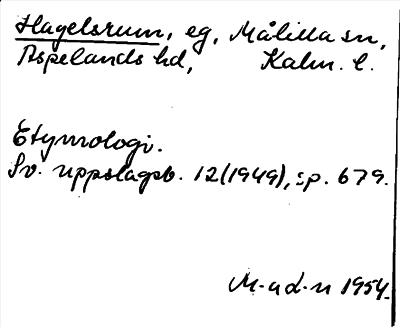 Hagelsrum, eg, Målilla sn,
Aspelands hd, Kalm. l.
Etymologi.
Sv. uppslagsb. 12(1949), sp. 679.
M-a d-n 1954.